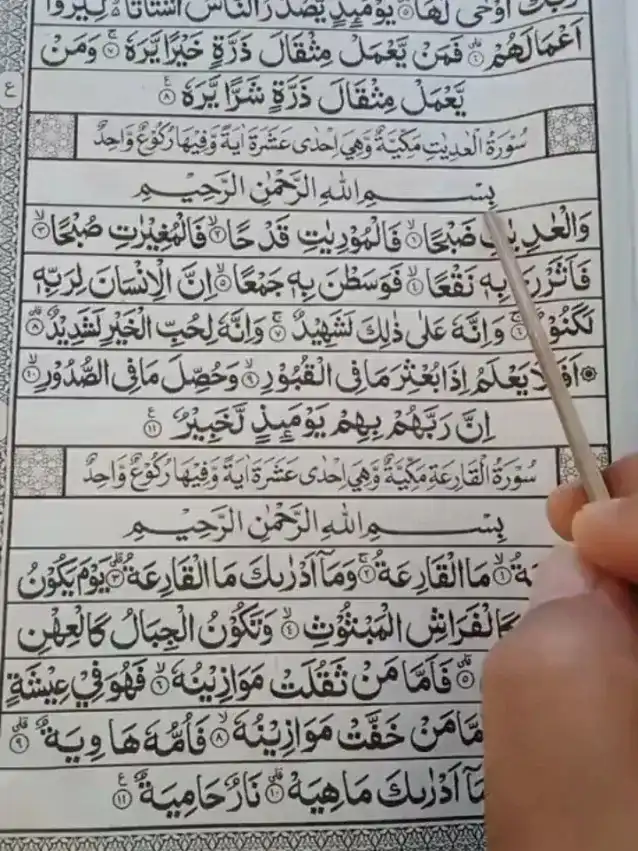 اَوْحٰى لَهَا ۝۵ يَوْمَئِذٍ يَّصْدُرُ النَّاسُ اَشْتَاتًا ۙ لِّيُرَوْا
اَعْمَالَهُمْ ۝۶ فَمَنْ يَّعْمَلْ مِثْقَالَ ذَرَّةٍ خَيْرًا يَّرَهٗ ۝۷ وَمَنْ
يَّعْمَلْ مِثْقَالَ ذَرَّةٍ شَرًّا يَّرَهٗ ۝۸
سُوْرَةُ الْعٰدِيٰتِ مَكِّيَّةٌ وَّهِيَ اِحْدٰى عَشَرَةَ اٰيَةً وَّفِيْهَا رُكُوْعٌ وَّاحِدٌ
بِسْمِ اللهِ الرَّحْمٰنِ الرَّحِيْمِ
وَالْعٰدِيٰتِ ضَبْحًا ۝۱ فَالْمُوْرِيٰتِ قَدْحًا ۝۲ فَالْمُغِيْرٰتِ صُبْحًا ۝۳
فَاَثَرْنَ بِهٖ نَقْعًا ۝۴ فَوَسَطْنَ بِهٖ جَمْعًا ۝۵ اِنَّ الْاِنْسَانَ لِرَبِّهٖ
لَكَنُوْدٌ ۝۶ وَاِنَّهٗ عَلٰى ذٰلِكَ لَشَهِيْدٌ ۝۷ وَاِنَّهٗ لِحُبِّ الْخَيْرِ لَشَدِيْدٌ ۝۸
اَفَلَا يَعْلَمُ اِذَا بُعْثِرَ مَا فِى الْقُبُوْرِ ۝۹ وَحُصِّلَ مَا فِى الصُّدُوْرِ ۝۱۰
اِنَّ رَبَّهُمْ بِهِمْ يَوْمَئِذٍ لَّخَبِيْرٌ ۝۱۱
سُوْرَةُ الْقَارِعَةِ مَكِّيَّةٌ وَّهِيَ اِحْدٰى عَشَرَةَ اٰيَةً وَّفِيْهَا رُكُوْعٌ وَّاحِدٌ
بِسْمِ اللهِ الرَّحْمٰنِ الرَّحِيْمِ
۝۱ مَا الْقَارِعَةُ ۝۲ وَمَاۤ اَدْرٰىكَ مَا الْقَارِعَةُ ۝۳ يَوْمَ يَكُوْنُ
كَالْفَرَاشِ الْمَبْثُوْثِ ۝۴ وَتَكُوْنُ الْجِبَالُ كَالْعِهْنِ
۝۵ فَاَمَّا مَنْ ثَقُلَتْ مَوَازِيْنُهٗ ۝۶ فَهُوَ فِيْ عِيْشَةٍ
مَنْ خَفَّتْ مَوَازِيْنُهٗ ۝۸ فَاُمُّهٗ هَاوِيَةٌ ۝۹
اَدْرٰىكَ مَاهِيَهْ ۝۱۰ نَارٌ حَامِيَةٌ ۝۱۱